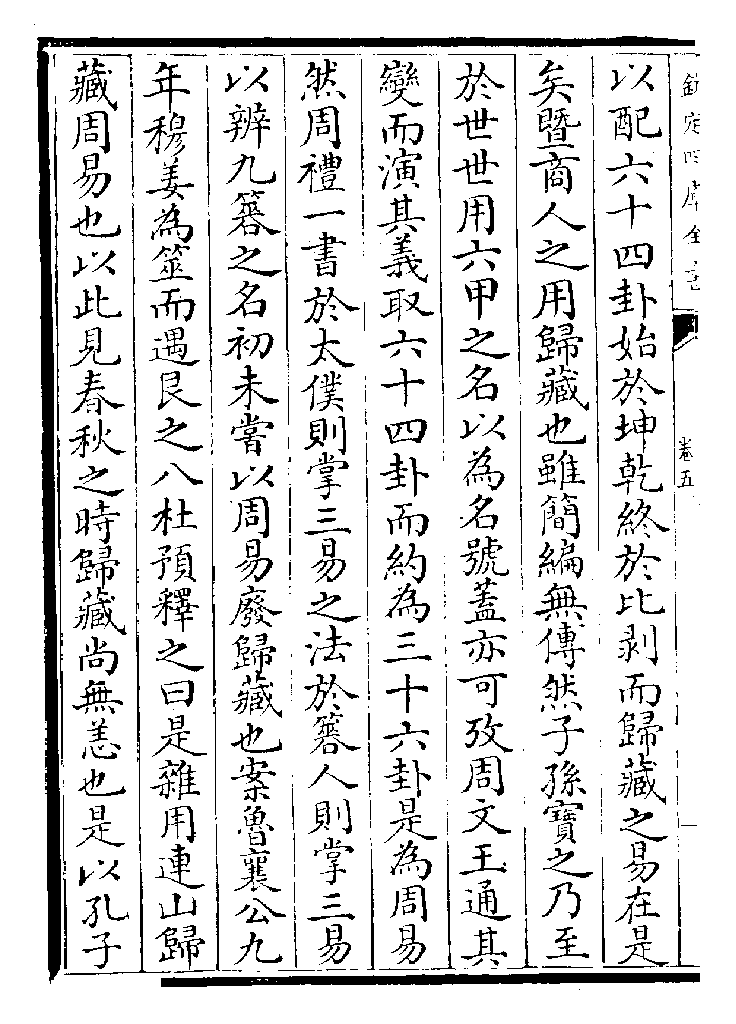 欽定四庫全書
卷五
以配六十四卦始於坤乾終於比剥而歸藏之易在是
矣暨商人之用歸藏也雖簡編無傳然子孫寶之乃至
於世世用六甲之名以為名號蓋亦可攷周文王通其
變而演其義取六十四卦而約為三十六卦是為周易
然周禮一書於太僕則掌三易之法於簭人則掌三易
以辨九簭之名初未嘗以周易廢歸藏也案魯襄公九
年穆姜為筮而遇艮之八杜預釋之曰是雜用連山歸
藏周易也以此見春秋之時歸藏尚無恙也是以孔子